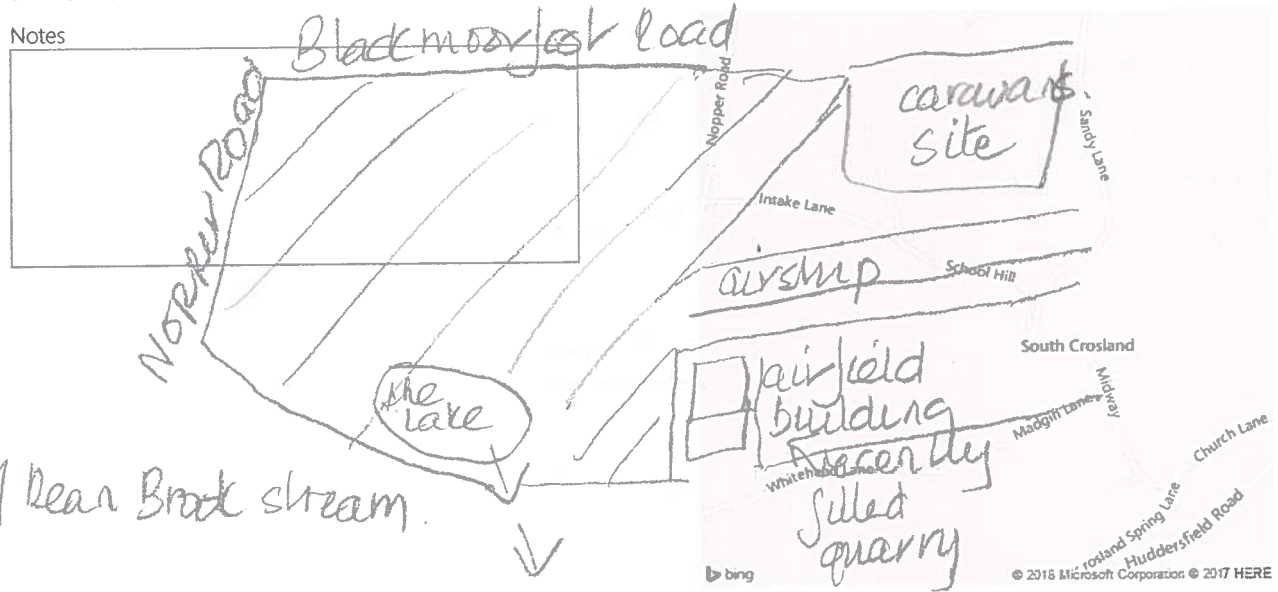 Notes
Blackmoorfoot Road
Nopper Road
NOPPER ROAD
caravans
site
Sandy Lane
Intake Lane
airship
School Hill
South Crosland
the
lake
airfield
building
recently
filled
quarry
Midway
Madgin Lane
Whitehead Lane
Church Lane
Dean Brook stream.
rosland Spring Lane
Huddersfield Road
bing
© 2018 Microsoft Corporation © 2017 HERE